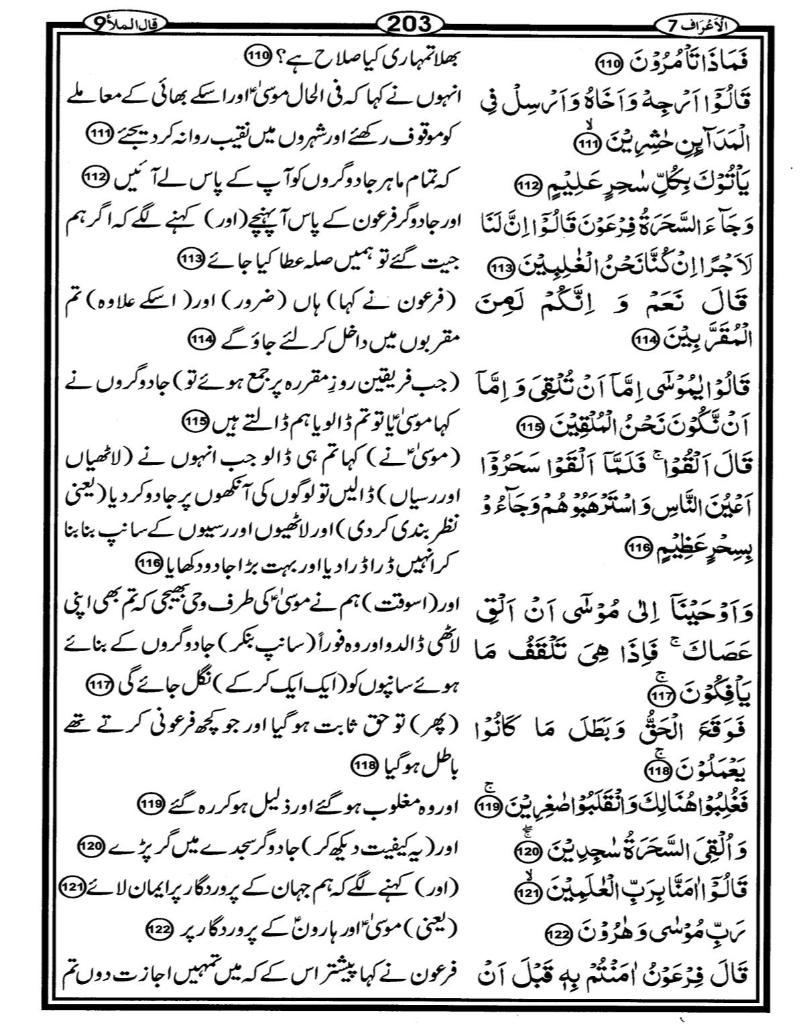 الْاَعْرَاف 7
203
قال الملأ 9
فَمَاذَا تَاْمُرُوْنَ 110
قَالُوْٓا اَرْجِهْ وَاَخَاهُ وَاَرْسِلْ فِى
الْمَدَآىِٕنِ حٰشِرِيْنَ ۙ 111
يَاْتُوْكَ بِكُلِّ سٰحِرٍ عَلِيْمٍ 112
وَجَآءَ السَّحَرَةُ فِرْعَوْنَ قَالُوْٓا اِنَّ لَنَا
لَاَجْرًا اِنْ كُنَّا نَحْنُ الْغٰلِبِيْنَ 113
قَالَ نَعَمْ وَ اِنَّكُمْ لَمِنَ
الْمُقَرَّبِيْنَ 114
قَالُوْا يٰمُوْسٰٓى اِمَّآ اَنْ تُلْقِىَ وَ اِمَّآ
اَنْ نَّكُوْنَ نَحْنُ الْمُلْقِيْنَ 115
قَالَ اَلْقُوْا ۚ فَلَمَّآ اَلْقَوْا سَحَرُوْٓا
اَعْيُنَ النَّاسِ وَاسْتَرْهَبُوْهُمْ وَجَآءُوْ
بِسِحْرٍ عَظِيْمٍ 116
وَاَوْحَيْنَآ اِلٰى مُوْسٰٓى اَنْ اَلْقِ
عَصَاكَ ۚ فَاِذَا هِىَ تَلْقَفُ مَا
يَاْفِكُوْنَ ۚ 117
فَوَقَعَ الْحَقُّ وَبَطَلَ مَا كَانُوْا
يَعْمَلُوْنَ ۚ 118
فَغُلِبُوْا هُنَالِكَ وَانْقَلَبُوْا صٰغِرِيْنَ ۚ 119
وَاُلْقِىَ السَّحَرَةُ سٰجِدِيْنَ ۚ 120
قَالُوْٓا اٰمَنَّا بِرَبِّ الْعٰلَمِيْنَ ۙ 121
رَبِّ مُوْسٰى وَهٰرُوْنَ 122
قَالَ فِرْعَوْنُ اٰمَنْتُمْ بِهٖ قَبْلَ اَنْ
بھلا تمہاری کیا صلاح ہے؟ 110
انہوں نے کہا کہ فی الحال موسیٰؑ اور اسکے بھائی کے معاملے
کو موقوف رکھئے اور شہروں میں نقیب روانہ کر دیجئے 111
کہ تمام ماہر جادوگروں کو آپ کے پاس لے آئیں 112
اور جادوگر فرعون کے پاس آ پہنچے (اور) کہنے لگے کہ اگر ہم
جیت گئے تو ہمیں صلہ عطا کیا جائے 113
(فرعون نے کہا) ہاں (ضرور) اور (اسکے علاوہ) تم
مقربوں میں داخل کر لئے جاؤ گے 114
(جب فریقین روزِ مقررہ پر جمع ہوئے تو) جادوگروں نے
کہا موسیٰؑ یا تو تم ڈالو یا ہم ڈالتے ہیں 115
(موسیٰؑ نے) کہا تم ہی ڈالو جب انہوں نے (لاٹھیاں
اور رسیاں) ڈالیں تو لوگوں کی آنکھوں پر جادو کر دیا (یعنی
نظر بندی کر دی) اور لاٹھیوں اور رسیوں کے سانپ بنا بنا
کر انہیں ڈرا ڈرا دیا اور بہت بڑا جادو دکھایا 116
اور (اسوقت) ہم نے موسیٰؑ کی طرف وحی بھیجی کہ تم بھی اپنی
لاٹھی ڈالدو اور وہ فوراً (سانپ بنکر) جادوگروں کے بنائے
ہوئے سانپوں کو (ایک ایک کر کے) نگل جائے گی 117
(پھر) تو حق ثابت ہو گیا اور جو کچھ فرعونی کرتے تھے
باطل ہو گیا 118
اور وہ مغلوب ہو گئے اور ذلیل ہو کر رہ گئے 119
اور (یہ کیفیت دیکھ کر) جادوگر سجدے میں گر پڑے 120
(اور) کہنے لگے کہ ہم جہان کے پروردگار پر ایمان لائے 121
(یعنی) موسیٰؑ اور ہارونؑ کے پروردگار پر 122
فرعون نے کہا پیشتر اس کے کہ میں تمہیں اجازت دوں تم